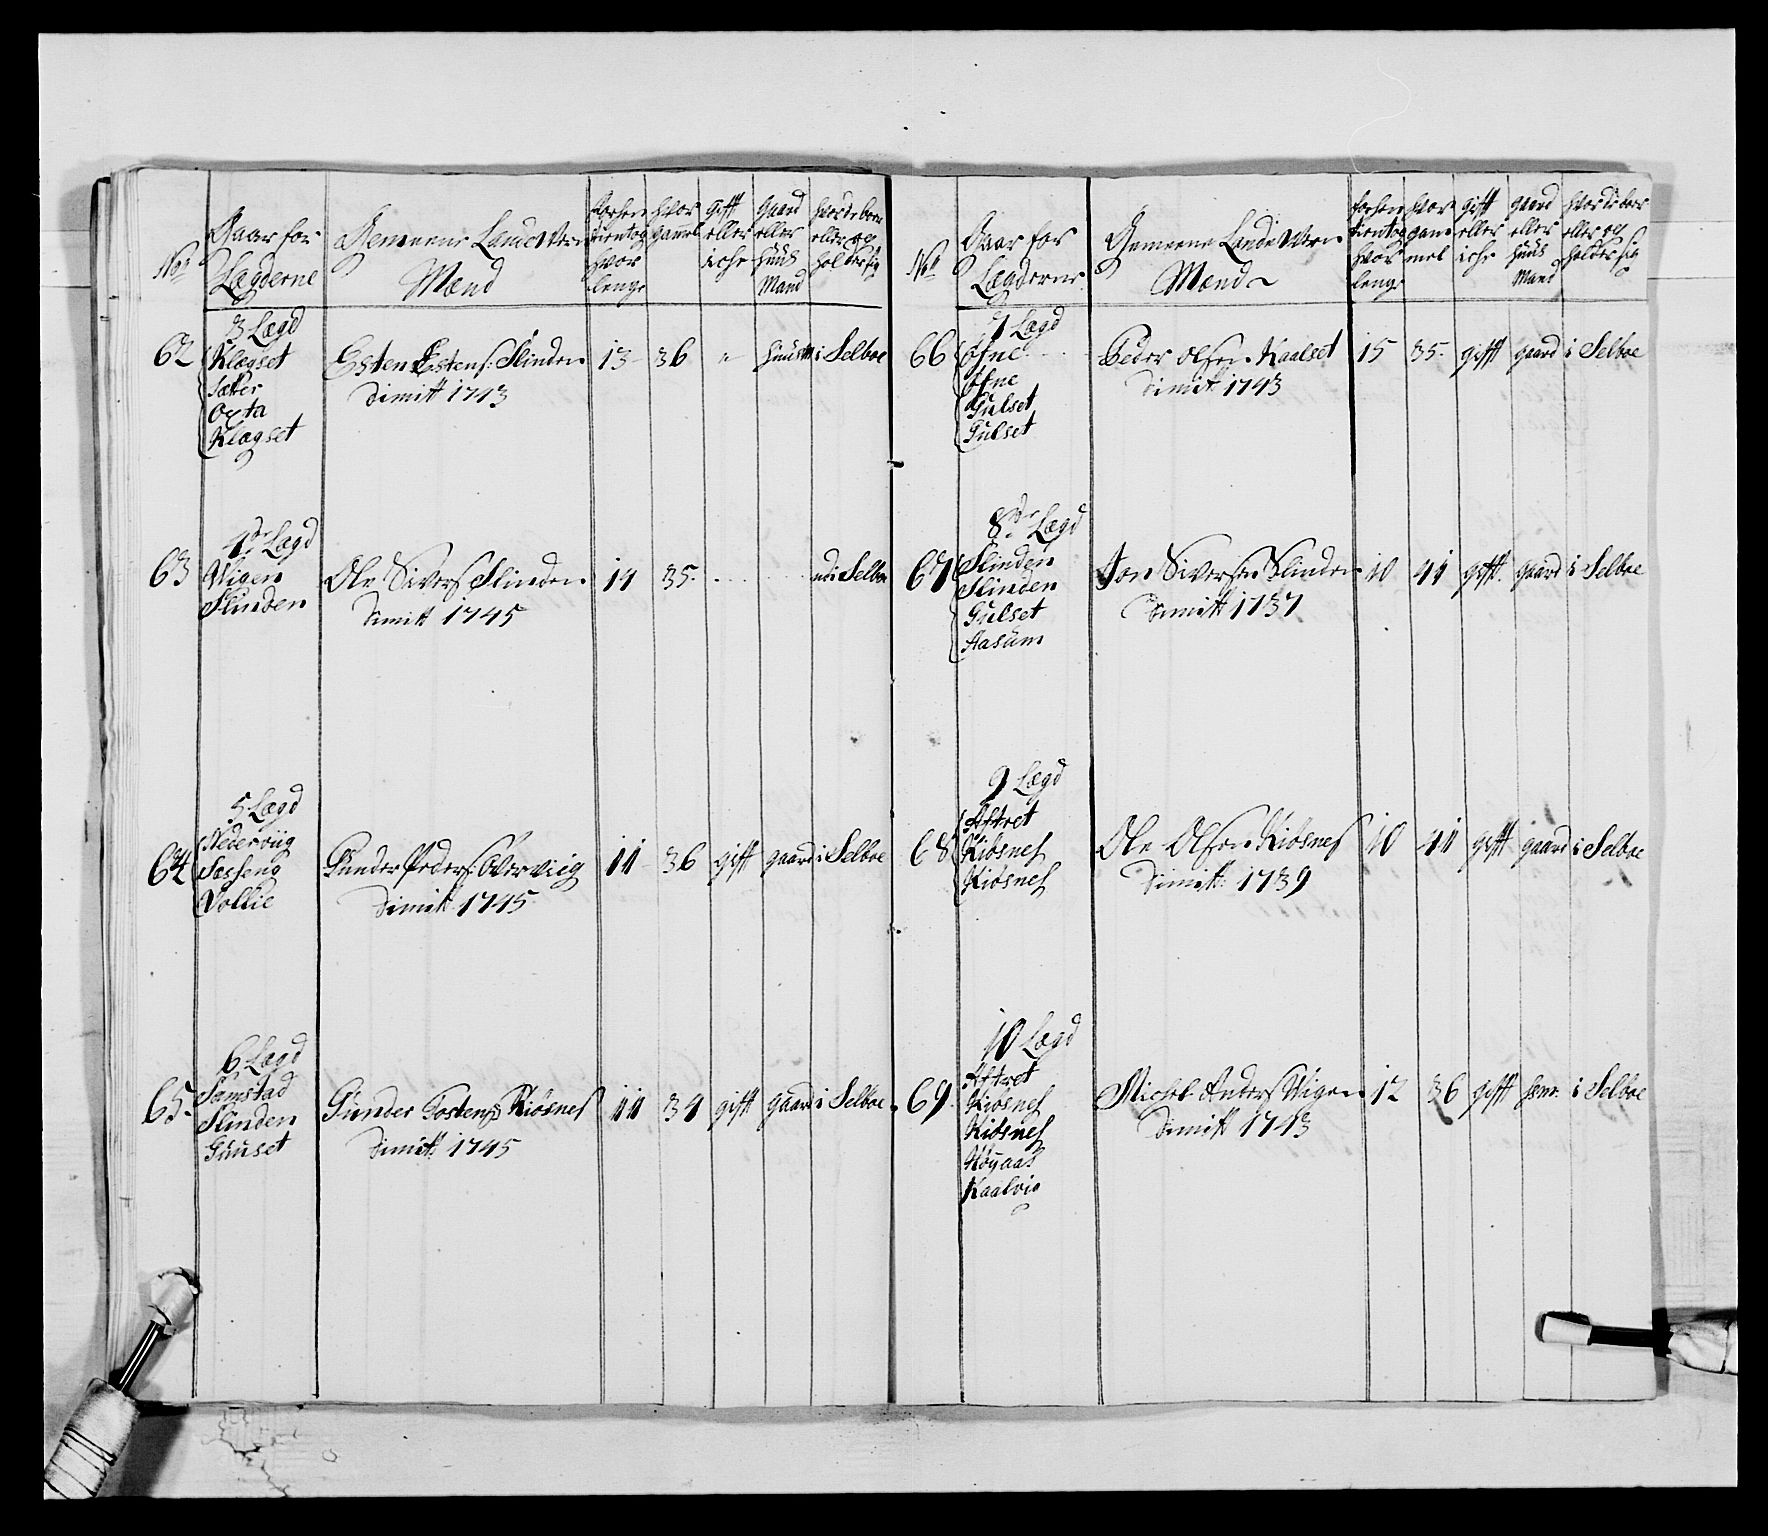 No:
Gaar for
Lægderne
Gemeene Lande Wern
Mænd
forhen
tient og
hvor
lenge
hvor
gamel
gift
eller
iche
Gaard
eller
Huus
Mand
hvor de boer
eller op
holder sig
62
3 Lægd
Klægset
Sæter
Oxta
Klægset
Esten Estens: Slinden
dimitt 1743
13
36
"
huusm
i Selboe
63
4de Lægd
Wigen
Slinden
Ole Sivers Slinden
dimitt 1745
14
35.
. . . .
i Selboe
64
5 Lægd
Nederviig
Sesseng
Vollie
Gunder Peders: Overviig
dimitt 1745
11
36
gift
gaard
i Selboe
65.
6 Lægd
Samstad
Slinden
Guuset
Gunder Tostens: Kiösnes
dimitt: 1745
11
34
gift
gaard
i Selboe
No:
Gaar for
Lægderne
Gemeene Lande Wern
Mænd
forhen
tient og
hvor
lenge
hvor
gam
mel
gift
eller
iche
gaard
eller
huus
Mand
hvor de boer
eller op
holder sig
66
7 Lægd
Öfne
Öfne
Gulset
Gulset
Peder Olsen Kaalset
dimitt 1743
15
35.
gifft
gaard
i Selboe
67
8de Lægd
Slinden
Slinden
Gulset
Aasum
Jon Siversen Slinden
dimitt 1737
10
41
gifft.
gaard
i Selboe
68
9 Lægd
Aftret
Kiösnes
Kiösnes
Ole Olsen Kiösnes
dimitt: 1739
10
41
gifft
gaard
i Selboe
69
10 Lægd
Aftret
Kiösnes
Kiösnes
Höyaas
Kaalvie
Michel Anders Wigen
dimitt 1743
12
36
gifft
hsm.
i Selboe